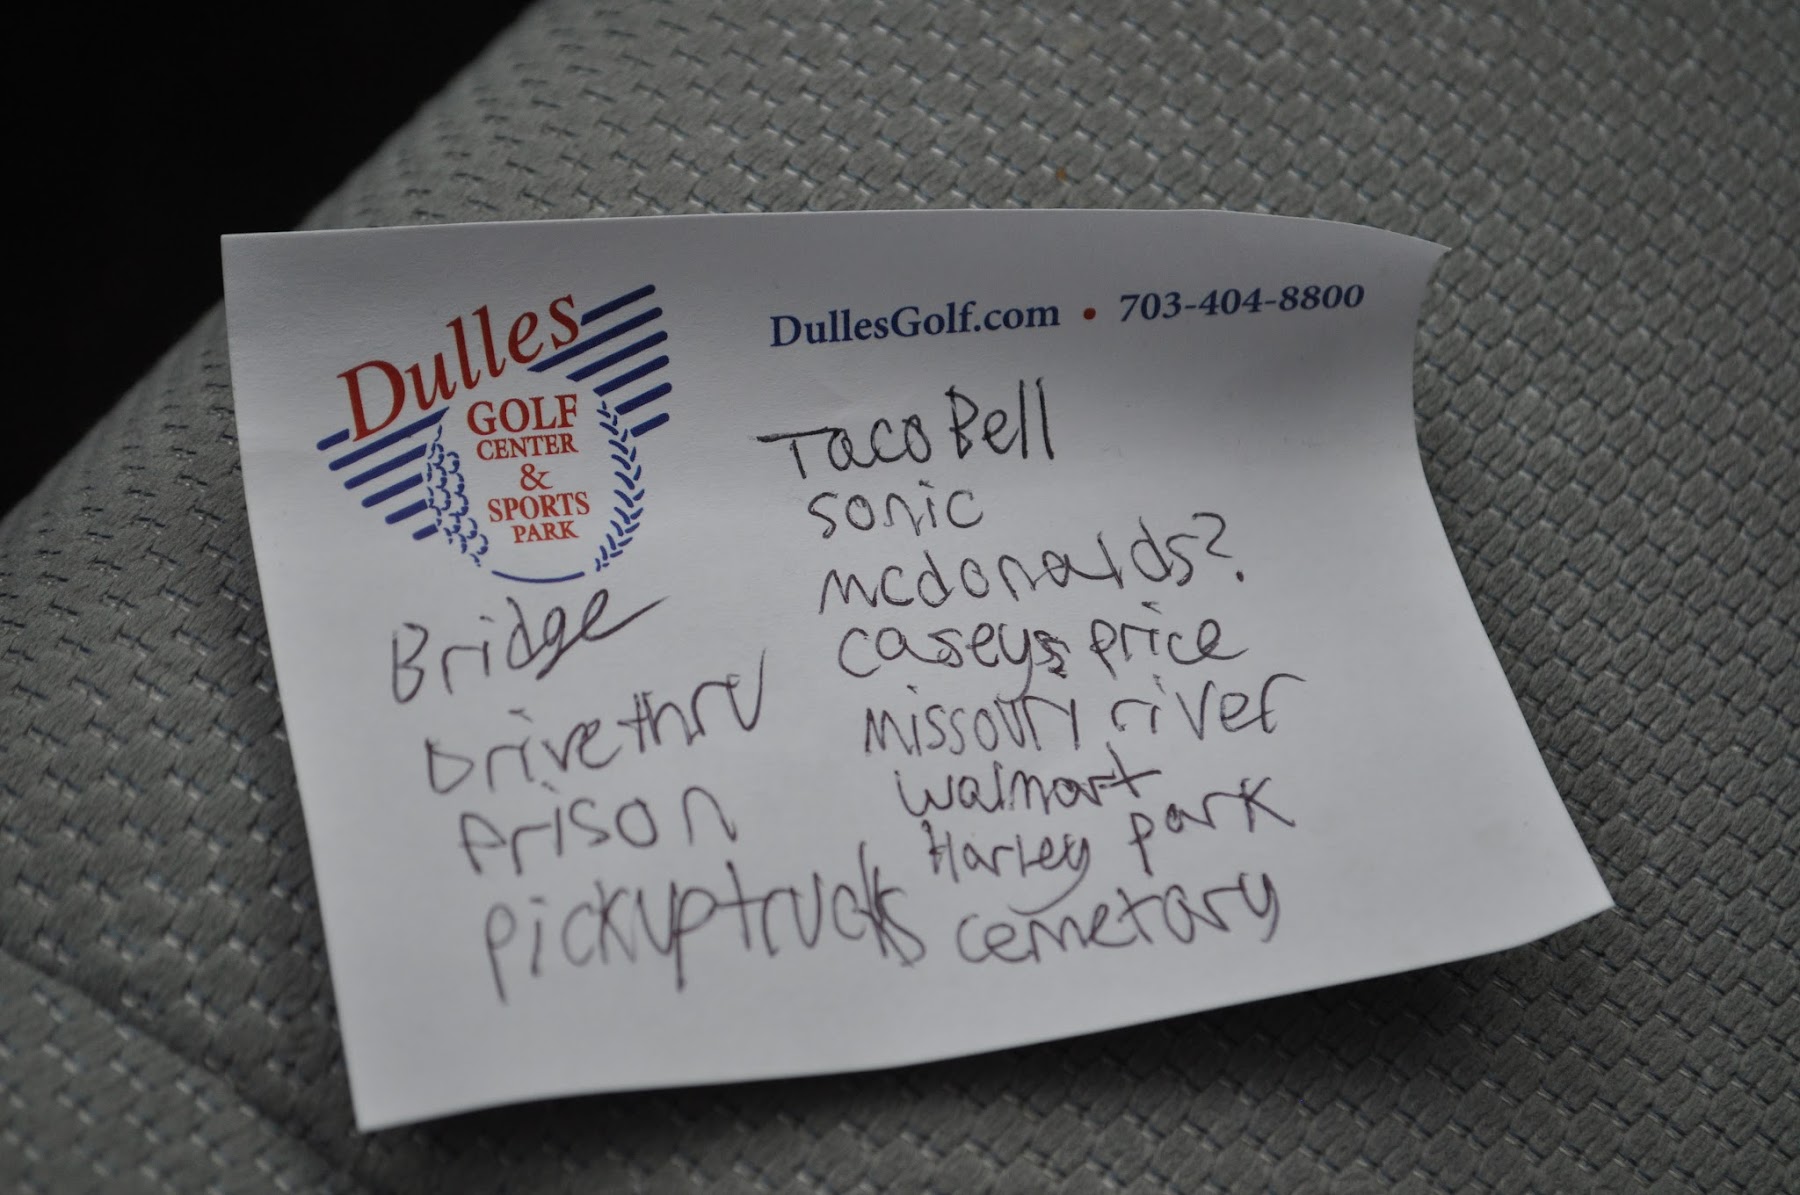 Dulles
GOLF
CENTER
&
SPORTS
PARK
DullesGolf.com • 703-404-8800
Taco Bell
sonic
mcdonalds?
caseys price
missouri river
walmart
Harley park
cemetary
Bridge
Drive thru
Prison
pickup trucks